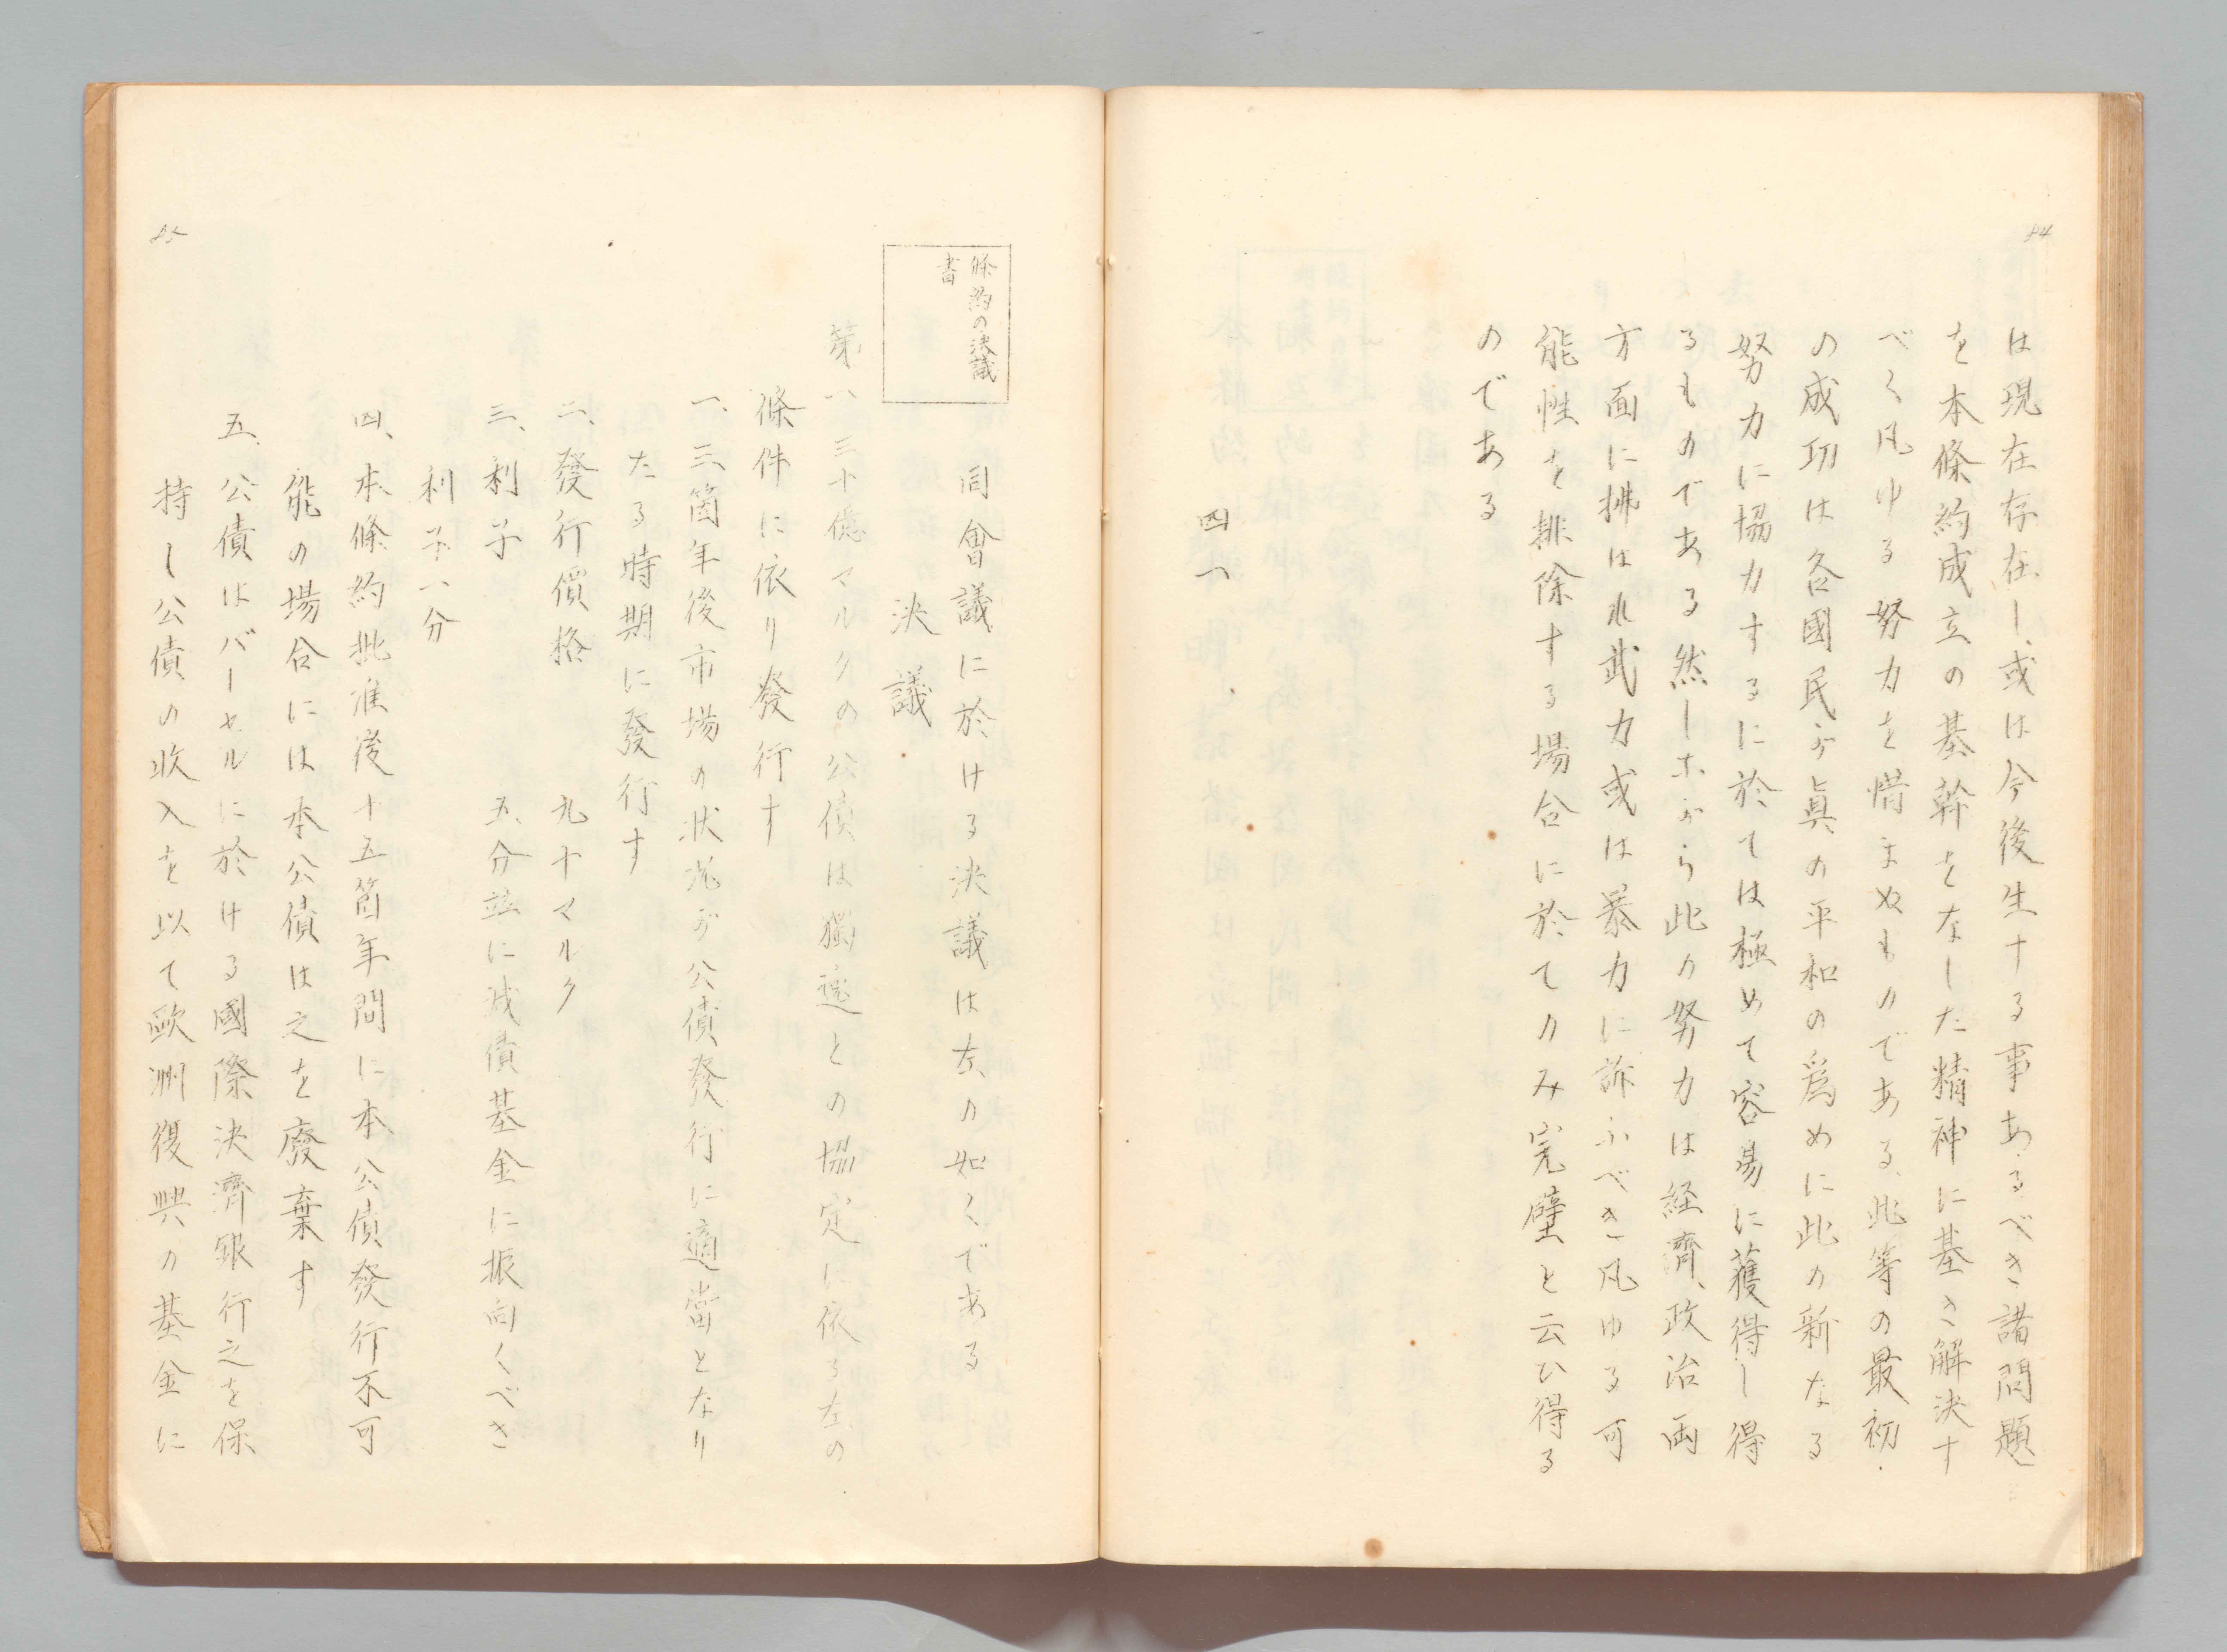 84
は現在存在し、或は今後生ずる事あるべき諸問題
を本條約成立の基幹をなした精神に基き解決す
べく凡ゆる努力を惜まぬものである、此等の最初
の成功は各國民が眞の平和の爲めに此の新なる
努力に協力するに於ては極めて容易に獲得し得
るものである然し乍がら此の努力は経濟、政治両
方面に拂はれ武力或は暴力に訴ふべき凡ゆる可
能性を排除する場合に於てのみ完璧と云ひ得る
のである
四一
條約の決議
書
同會議に於ける決議は左の如くである
決議
第一、三十億マルクの公債は獨逸との協定に依る左の
條件に依り發行す
一、三箇年後市場の状况が公債發行に適當となり
たる時期に發行す
二、發行價格　九十マルク
三、利子　五分並に減債基金に振向くべき
利子一分
四、本條約批准後十五箇年間に本公債發行不可
能の場合には本公債は之を廢棄す
五、公債はバーゼルに於ける國際決濟銀行之を保
持し公債の收入を以て歐洲復興の基金に
85